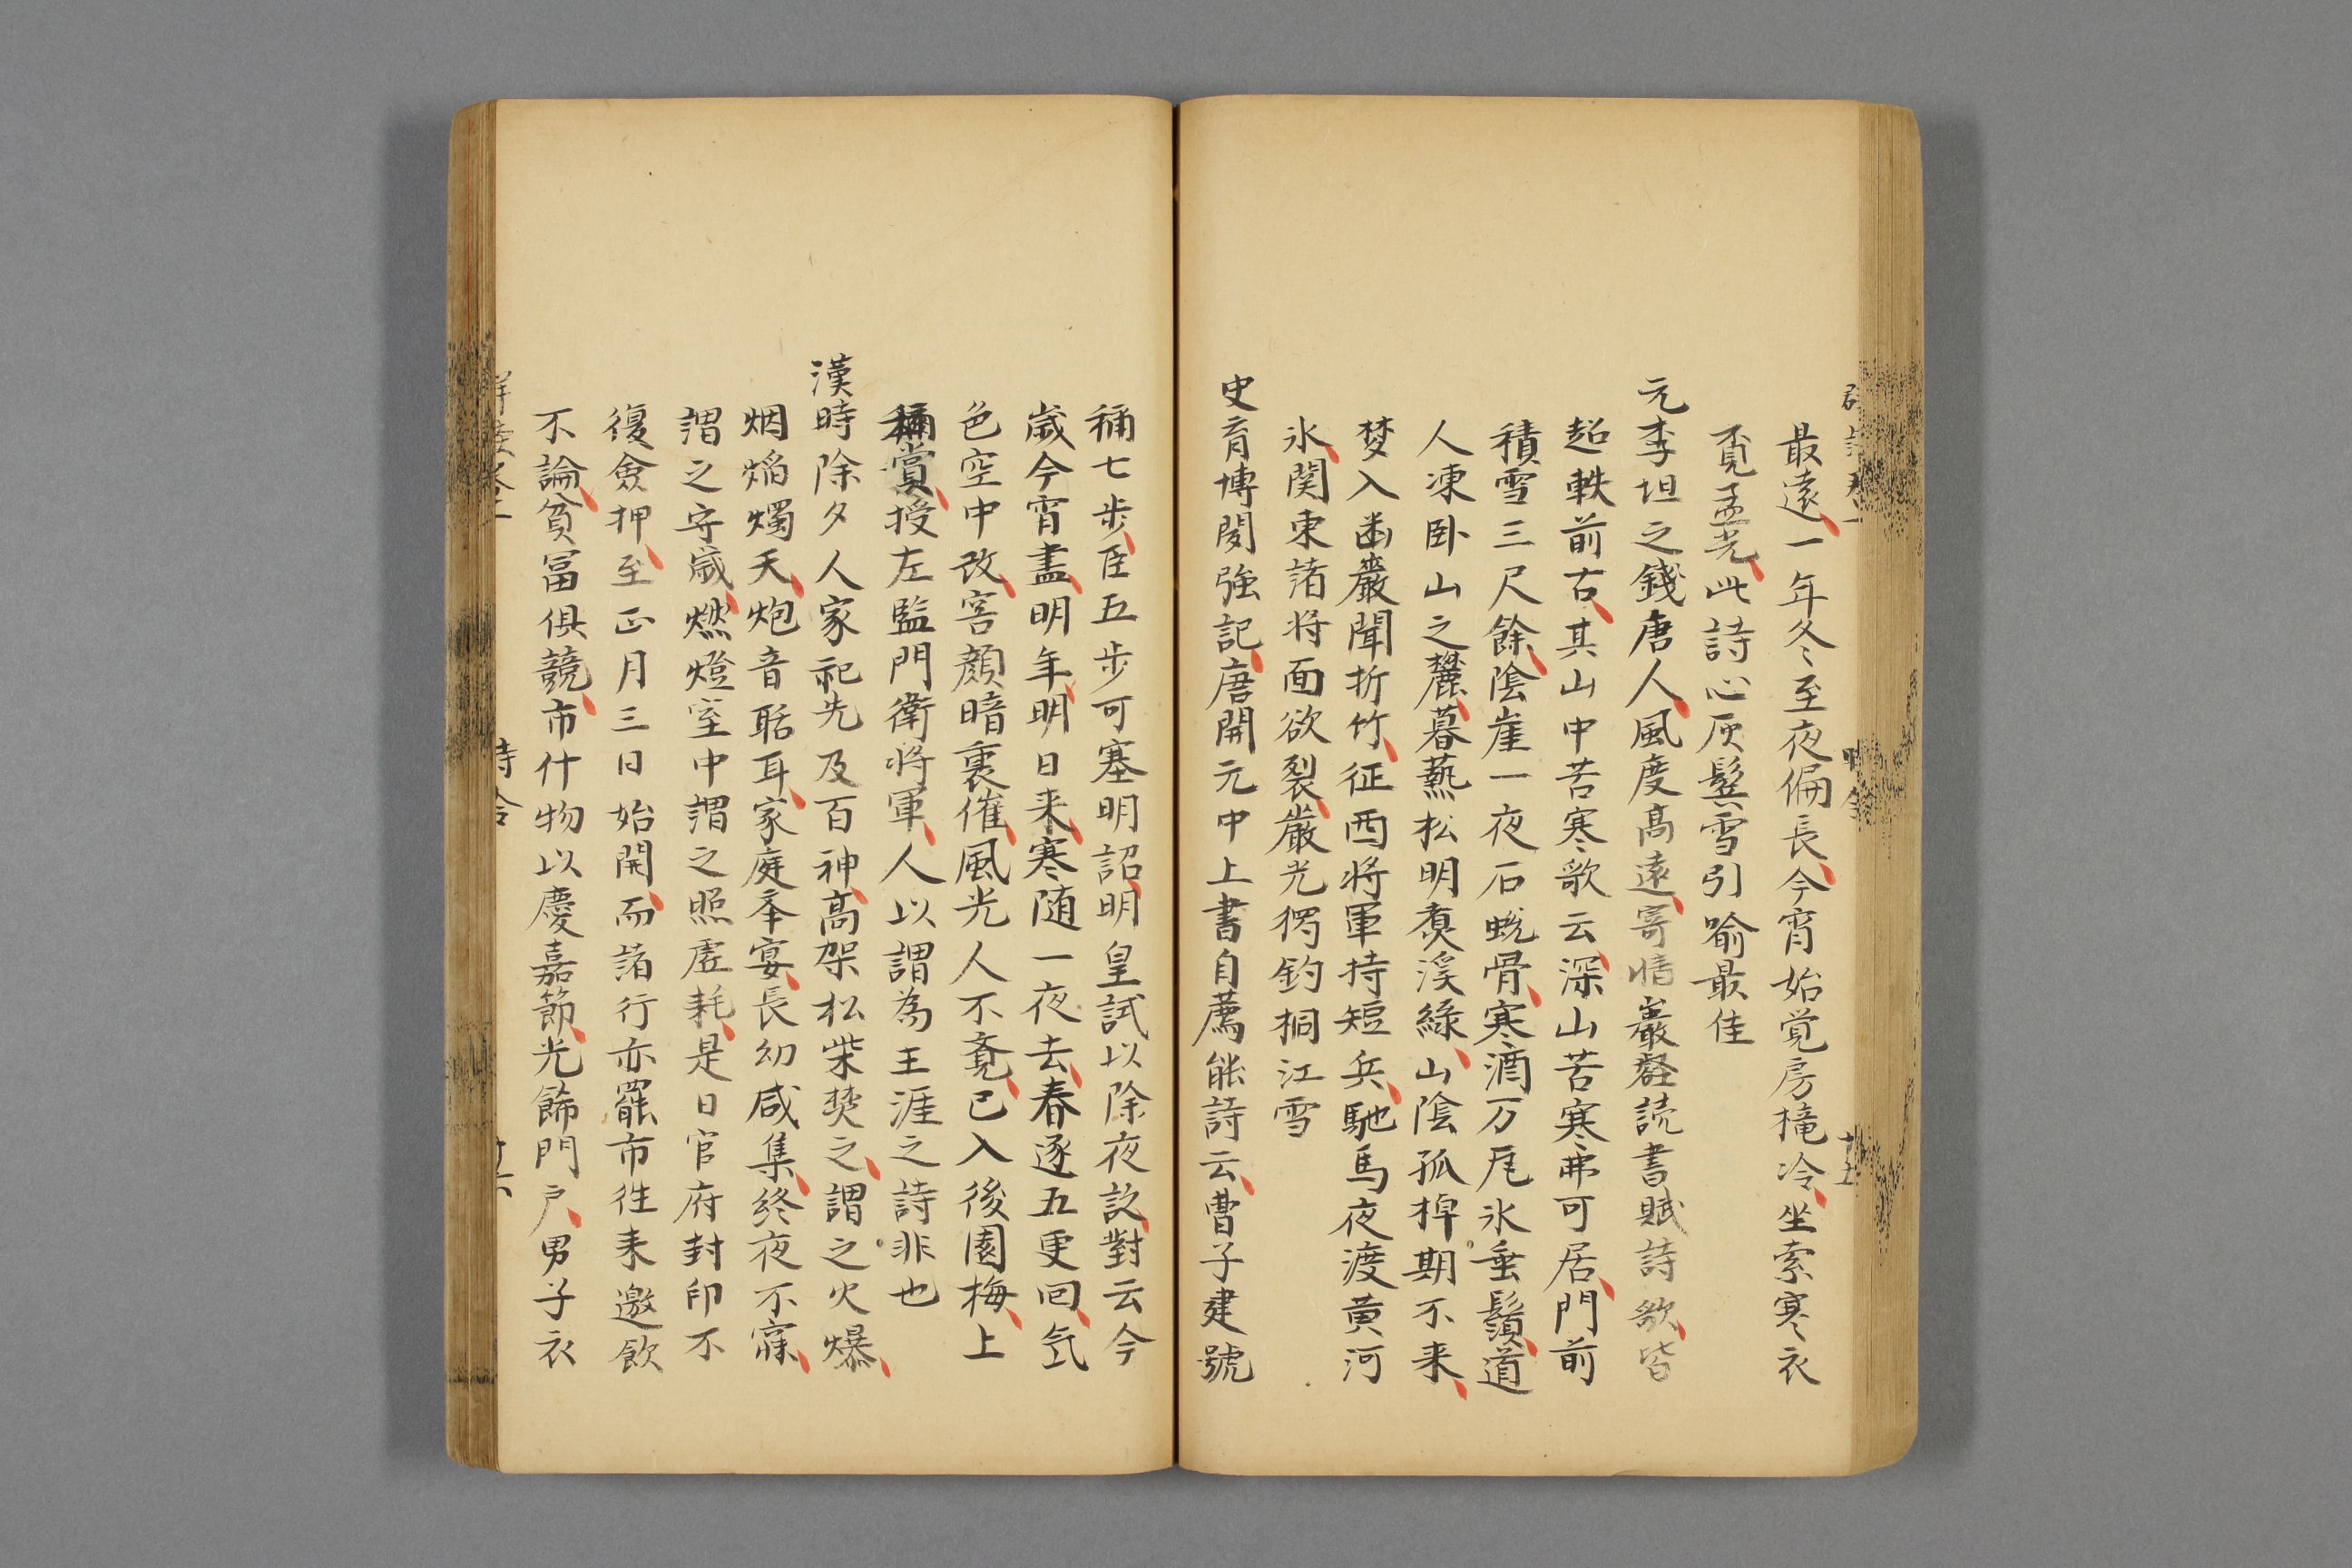 最遠一年冬至夜偏長今宵始覚房櫳冷坐索寒衣
覔孟光此詩心灰鬂雪引喻最佳
元李坦之錢唐人風度高遠寄情巖壑読書賦詩歌皆
超軼前古其山中苦寒歌云深山苦寒弗可居門前
積雪三尺餘陰崖一夜石蛻骨寒酒万尾氷垂鬚道
人凍卧山之麓暮爇松明煑溪綠山陰孤棹期不来
梦入幽巖聞折竹征西将軍持短兵馳馬夜渡黄河
氷関東諸将面欲裂嚴光獨釣桐江雪
史育博聞強記唐開元中上書自薦能詩云曹子建號
稱七步臣五步可塞明詔明皇試以除夜詩對云今
歳今宵盡明年明日来寒随一夜去春逐五更回気
色空中改容顔暗裏催風光人不覔已入後園梅上
稱賞授左監門衛将軍人以謂為王涯之詩非也
漢時除夕人家祀先及百神高架松柴焚之謂之火爆
烟焔燭天炮音聒耳家庭奉宴長幼咸集終夜不寐
謂之守歳燃燈室中謂之照虛耗是日官府封印不
復僉押至正月三日始開而諸行亦罷市徃来邀飲
不論貧冨俱競市什物以慶嘉節光飾門户男子衣